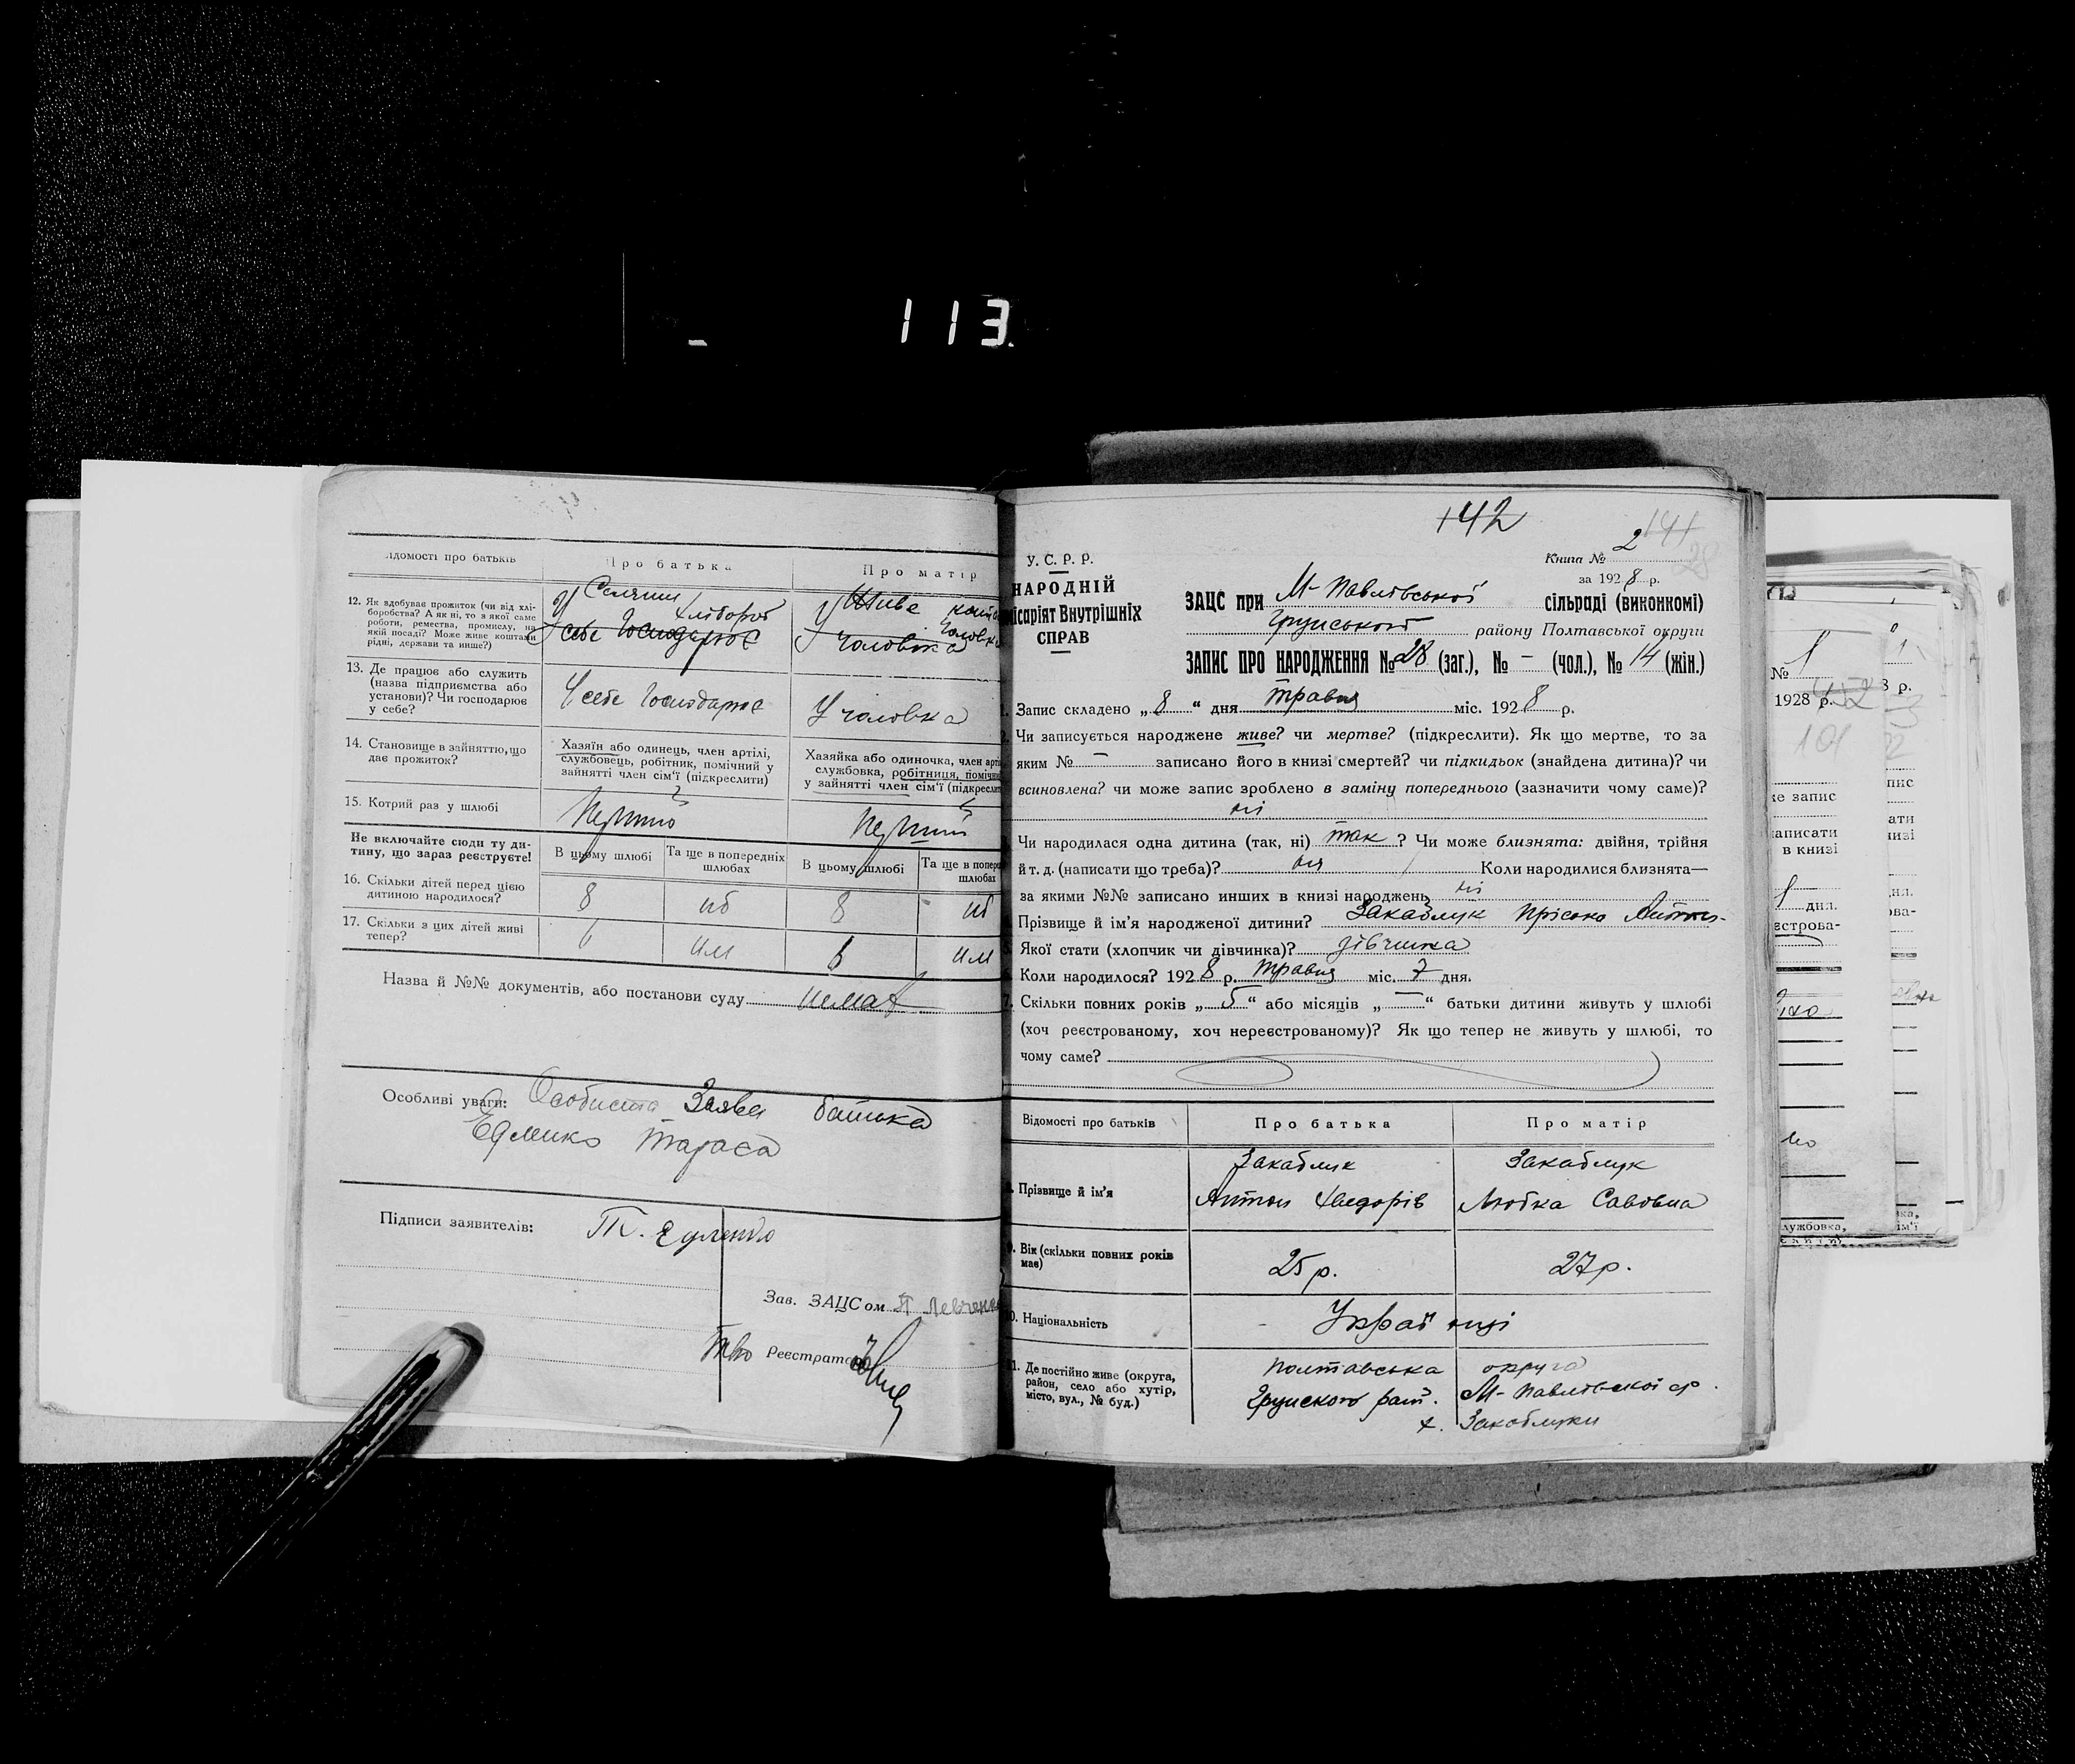 113.
Відомості про батьків
Про батька
Про матір
12. Як здобуває прожиток (чи від хлі-
боробства? А як ні, то з якої саме
роботи, ремества, промислу, на
якій посаді? Може живе коштами
рідні, держави та инше?)
Селянин
хлібороб
У себе господарює
Живе кошт
чоловіка
У чоловіка
13. Де працює або служить
(назва підприємства або
установи)? Чи господарює
у себе?
У себе господарює
У чоловіка
14. Становище в зайняттю, що
дає прожиток?
Хазяїн або одинець, член артілі,
службовець, робітник, помічний у
зайнятті член сім'ї (підкреслити)
Хазяйка або одиночка, член арті
службовка, робітниця, помічна
у зайнятті член сім'ї (підкреслит
15. Котрий раз у шлюбі
Перший
Перший
Не включайте сюди ту ди-
тину, що зараз реєструєте!
В цьому шлюбі
Та ще в попередніх
шлюбах
В цьому шлюбі
Та ще в попере
шлюбах
16. Скільки дітей перед цією
дитиною народилося?
8
8
17. Скільки з цих дітей живі
тепер?
6
6
Назва й №№ документів, або постанови суду немає
Особливі уваги: Особиста Заява батька
Тараса
Підписи заявителів:
Зав. ЗАЦСом П Левченко
Реєстратор
142
141
28
У. С. Р. Р.
НАРОДНІЙ
місаріят Внутрішніх
СПРАВ
Книга № 2
за 1928 р.
ЗАЦС при М-Павлівської сільраді (виконкомі)
Грунського району Полтавської округи
ЗАПИС ПРО НАРОДЖЕННЯ № 28 (заг.), № – (чол.), № 14 (жін.)
1. Запис складено „8“ дня травня міс. 1928 р.
Чи записується народжене живе? чи мертве? (підкреслити). Як що мертве, то за
яким № – записано його в книзі смертей? чи підкидьок (знайдена дитина)? чи
всиновлена? чи може запис зроблено в заміну попереднього (зазначити чому саме)?
ні
Чи народилася одна дитина (так, ні) так ? Чи може близнята: двійня, трійня
й т. д. (написати що треба)? ні Коли народилися близнята—
за якими №№ записано инших в книзі народжень ні
Прізвище й ім'я народженої дитини? Закаблук Пріська Антон-
Якої стати (хлопчик чи дівчинка)? дівчинка
Коли народилося? 1928 р. травня міс. 7 дня.
7. Скільки повних років „5“ або місяців „–“ батьки дитини живуть у шлюбі
(хоч реєстрованому, хоч нереєстрованому)? Як що тепер не живуть у шлюбі, то
чому саме?
Відомості про батьків
Про батька
Про матір
Прізвище й ім'я
Закаблук
Антон Хведорів
Закаблук
Любка Савовна
9. Вік (скільки повних років
має)
25 р.
27 р.
10. Національність
Українці
11. Де постійно живе (округа,
район, село або хутір,
місто, вул., № буд.)
Полтавська округа
Грунского рай. М-Павлівської с/р.
х. Закаблуки
№ 1
1928 р.
101
же запис
написати
в книзі
дня.
естрова-
службовка,